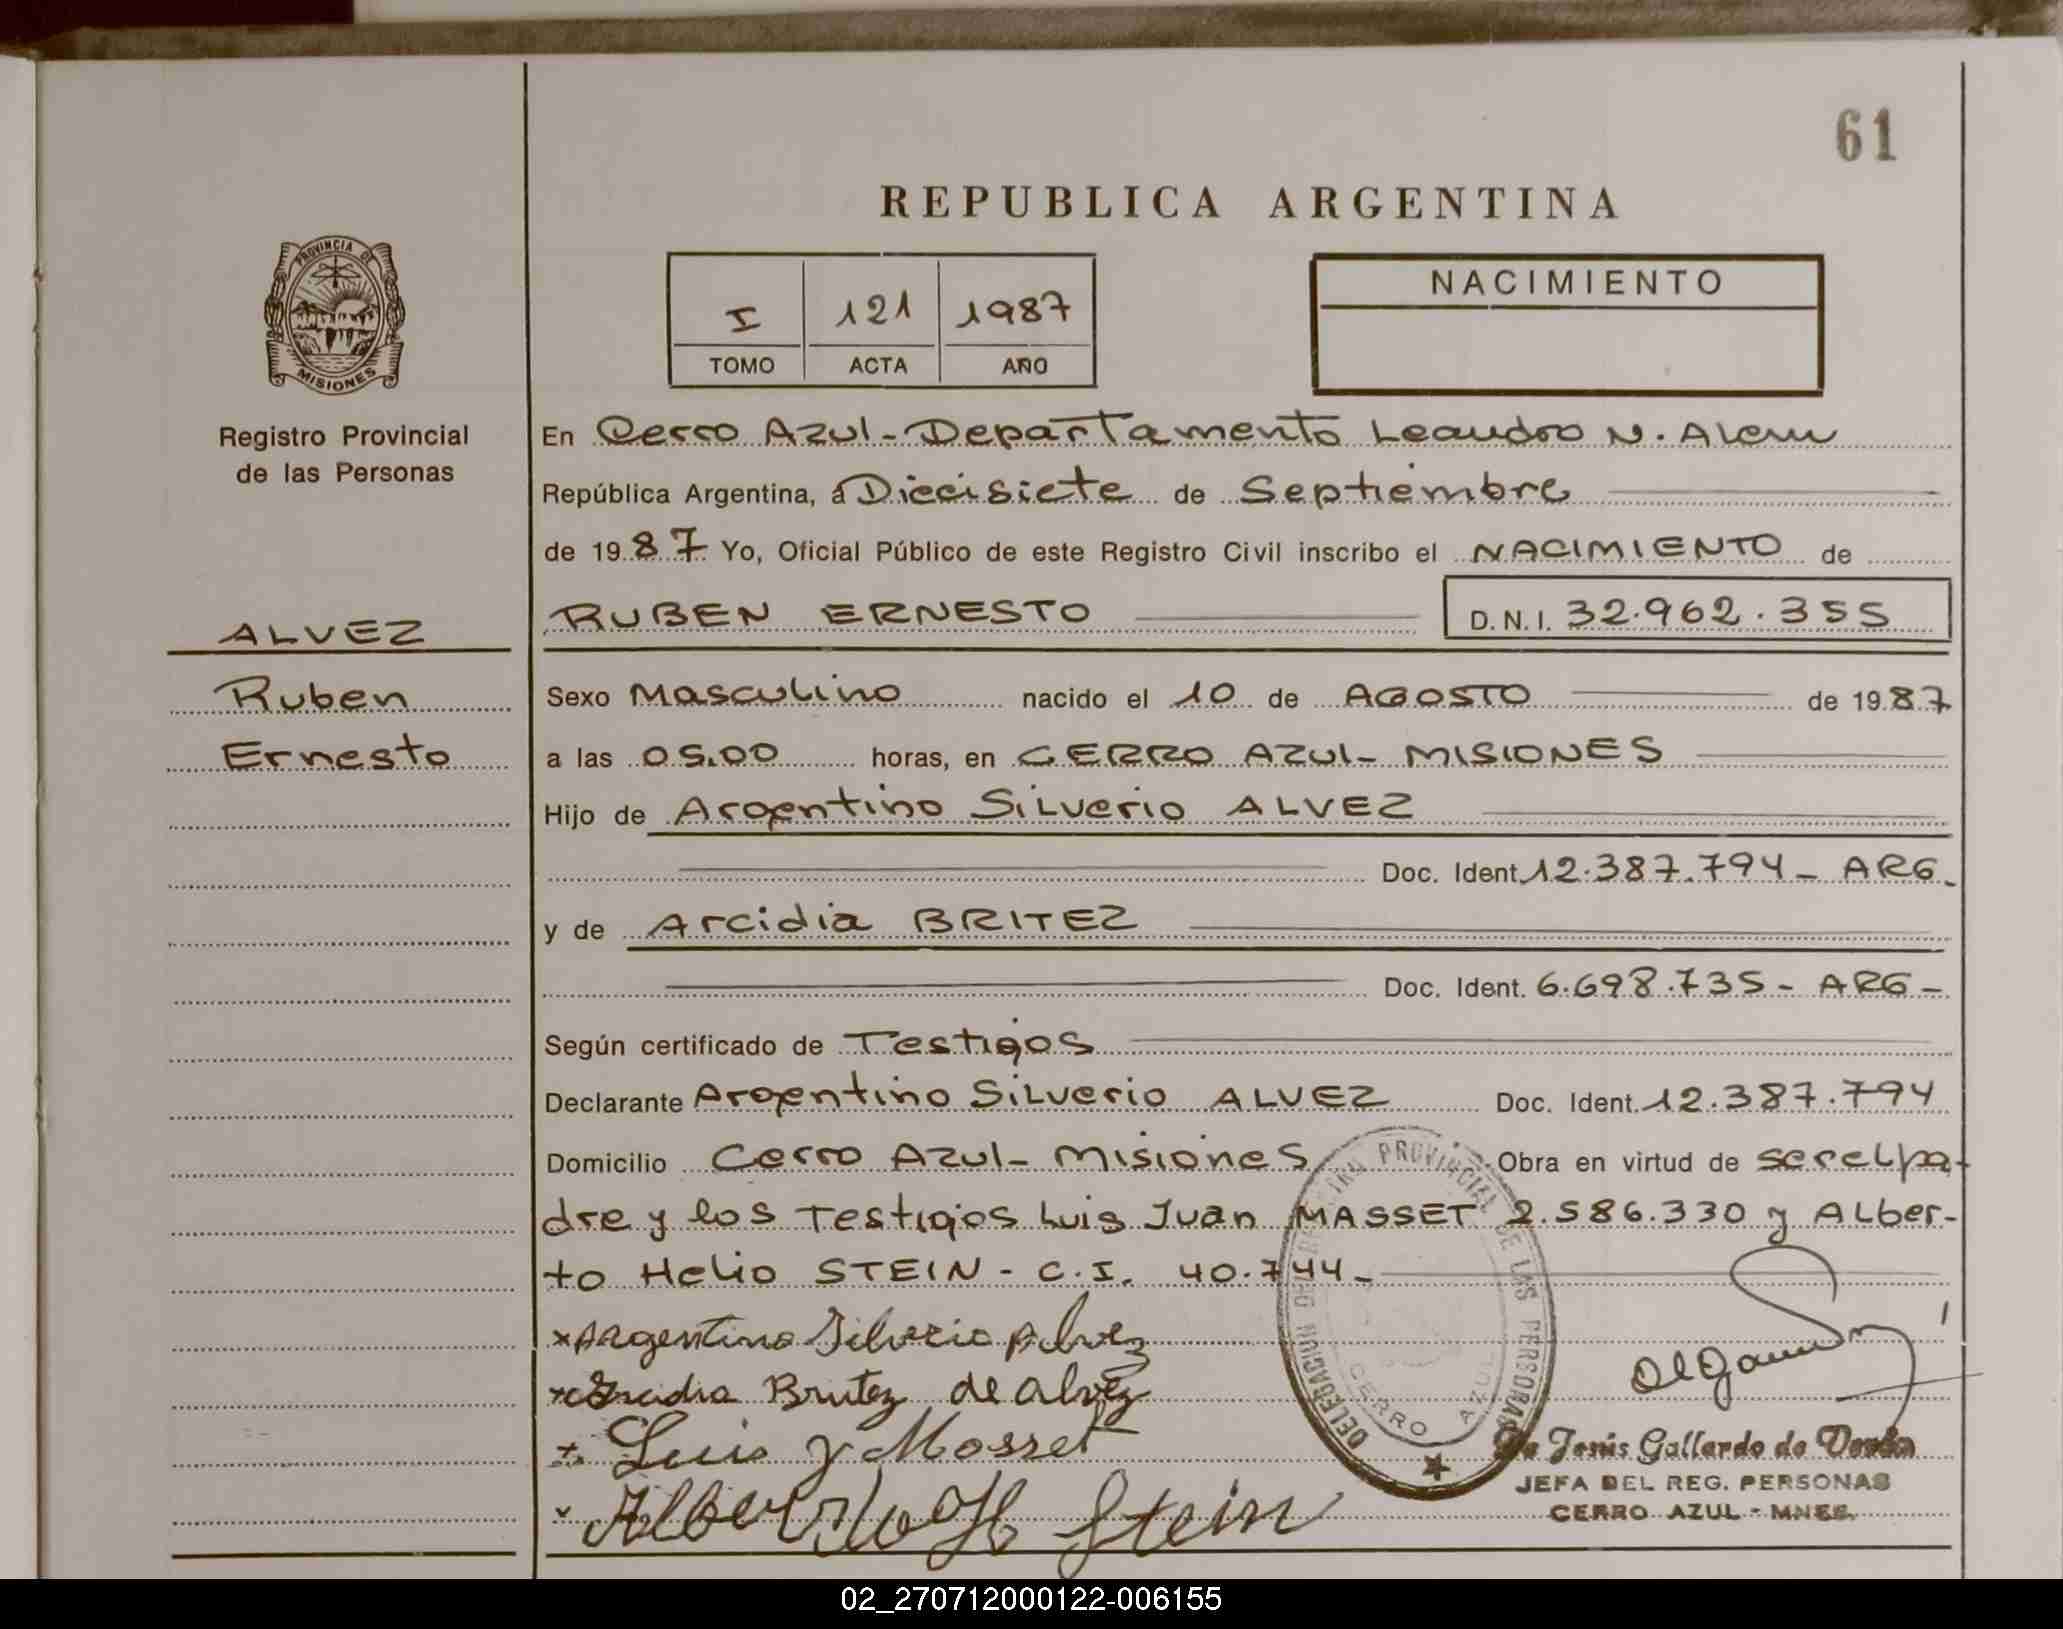 61
REPUBLICA ARGENTINA
PROVINCIA DE
MISIONES
Registro Provincial
de las Personas
I 121 1987
TOMO ACTA AÑO
NACIMIENTO
En Cerro Azul-Departamento Leandro N. Alem
República Argentina, a Diecisiete de Septiembre
de 1987 Yo, Oficial Público de este Registro Civil inscribo el NACIMIENTO de
ALVEZ
Ruben
Ernesto
RUBEN ERNESTO D.N.I. 32.962.355
Sexo Masculino nacido el 10 de AGOSTO de 1987
a las 05.00 horas, en CERRO AZUL- MISIONES
Hijo de Argentino Silverio ALVEZ
Doc. Ident. 12.387.794- ARG.
y de Arcidia BRITEZ
Doc. Ident. 6.698.735- ARG-
Según certificado de Testigos
Declarante Argentino Silverio ALVEZ Doc. Ident. 12.387.794
Domicilio Cerro Azul- Misiones Obra en virtud de ser el pa-
dre y los Testigos Luis Juan MASSET 2.586.330 y Alber-
to Helio STEIN - C.I. 40.744-
x Argentino Silverio Alvez
x Arcidia Britez de Alvez
x Luis J Masset
x Alberto H Stein
DELEGACION DEL REGISTRO PROVINCIAL DE LAS PERSONAS
CERRO AZUL
Jesús Gallardo de
JEFA DEL REG. PERSONAS
CERRO AZUL - MNES.
02_270712000122-006155